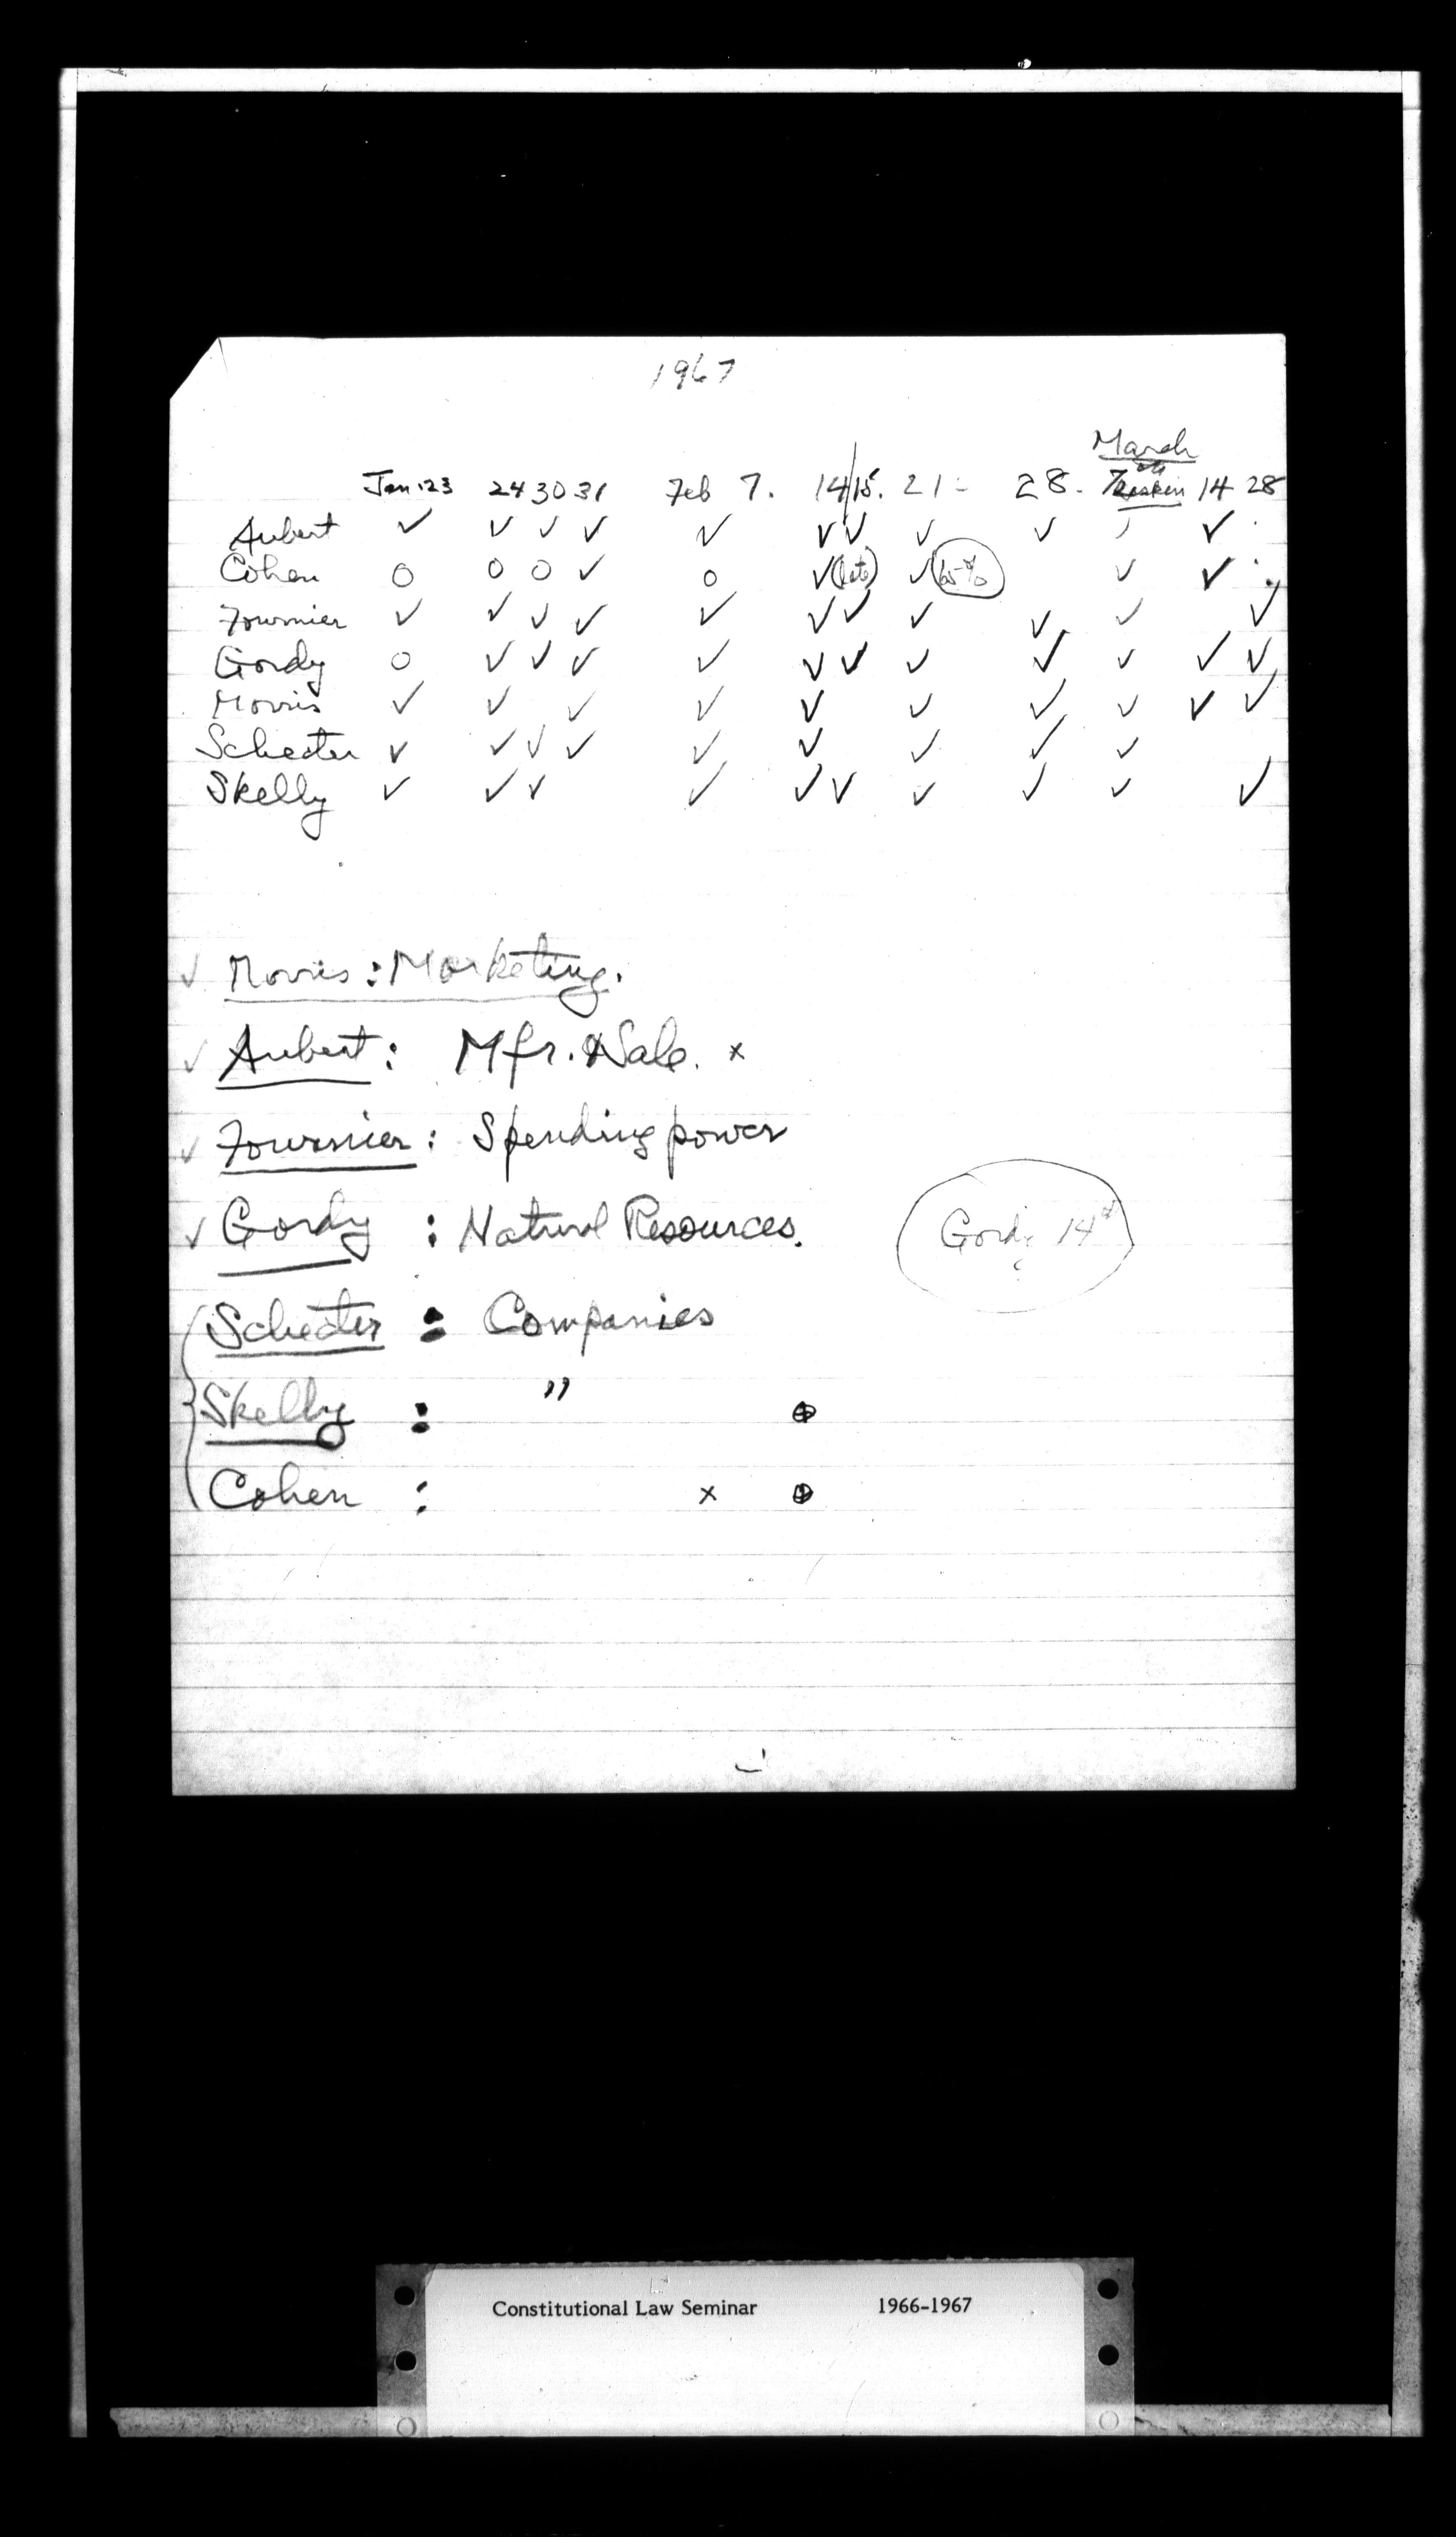 1967
March
Jan. 23 24 30 31 Feb 7. 14/15. 21- 28. 7 14 28
Aubert ✓ ✓ ✓ ✓ ✓ ✓ ✓ ✓ ✓ ✓
Cohen o o o ✓ o ✓ (late) ✓ 65% ✓ ✓
Fournier ✓ ✓ ✓ ✓ ✓ ✓ ✓ ✓ ✓ ✓ ✓
Gordy o ✓ ✓ ✓ ✓ ✓ ✓ ✓ ✓ ✓ ✓ ✓
Morris ✓ ✓ ✓ ✓ ✓ ✓ ✓ ✓ ✓ ✓
Schecter ✓ ✓ ✓ ✓ ✓ ✓ ✓ ✓ ✓
Skelly ✓ ✓ ✓ ✓ ✓ ✓ ✓ ✓ ✓ ✓
✓ Morris : Marketing.
✓ Aubert : Mfr. Sale. x
✓ Fournier : Spending power
✓ Gordy : Natural Resources.
Gordy 14th
Schecter : Companies
Skelly : " ⊕
Cohen : x ⊕
Constitutional Law Seminar 1966-1967